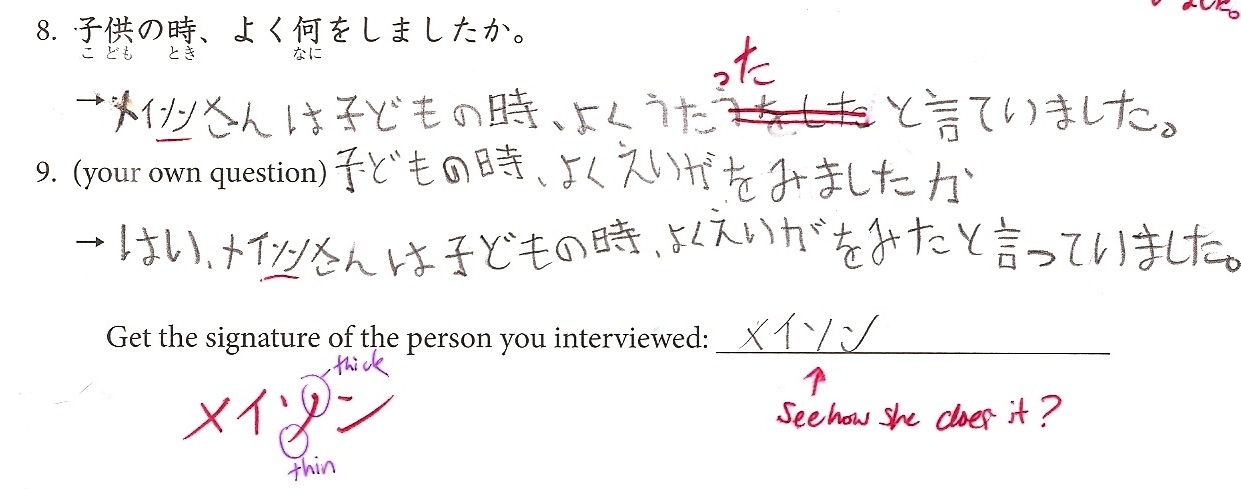 ました。
8. 子供の時、よく何をしましたか。
こ ども とき なに
った
→メイソンさんは子どもの時、よくうたうをした。と言ていました。
9. (your own question) 子どもの時、よくえいがをみましたか
→はい、メイソンさんは子どもの時、よくえいがをみたと言っていました。
Get the signature of the person you interviewed: メイソン
thick
メイソン
thin
See how she does it?